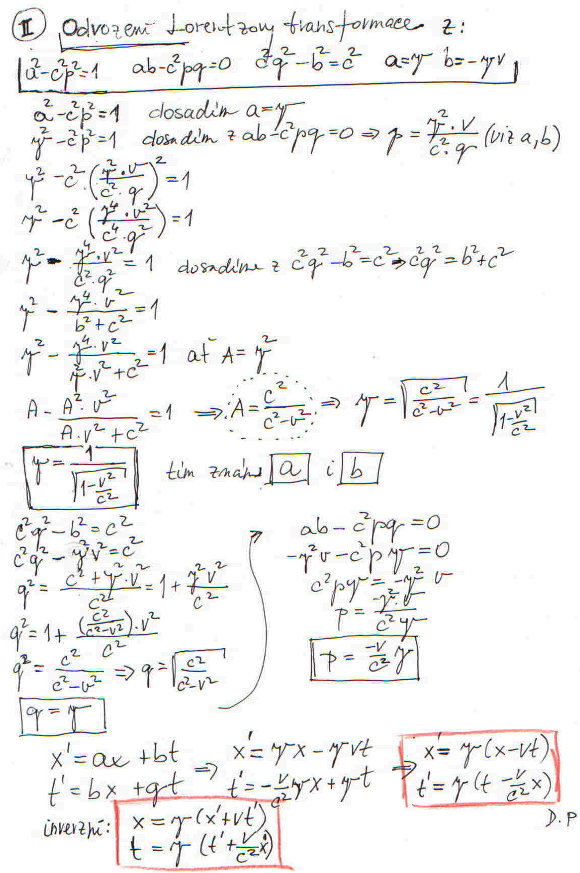 II Odvození Lorentzovy transformace z:
a²-c²p²=1 ab-c²pq=0 c²q²-b²=c² a=γ b=-γv
a²-c²p²=1 dosadím a=γ
γ²-c²p²=1 dosadím z ab-c²pq=0 ⇒ p=γ²·v/c²·q (viz a,b)
γ²-c²·(γ²·v/c²·q)²=1
γ²-c²(γ⁴·v²/c⁴·q²)=1
γ²-γ⁴·v²/c²·q²=1 dosadíme z c²q²-b²=c² ⇒ c²q²=b²+c²
γ²-γ⁴·v²/b²+c²=1
γ²-γ⁴·v²/γ²·v²+c²=1 ať A=γ²
A-A²·v²/A·v²+c²=1 ⇒ A=c²/c²-v² ⇒ γ=√c²/c²-v²=1/√1-v²/c²
γ=1/√1-v²/c² tím známe a i b
c²q²-b²=c²
c²q²-γ²v²=c²
q²=c²+γ²·v²/c²=1+γ²v²/c²
q²=1+(c²/c²-v²)·v²/c²
q²=c²/c²-v² ⇒ q=√c²/c²-v²
q=γ
ab-c²pq=0
-γ²v-c²pγ=0
c²pγ=-γ²v
p=-γ²·v/c²γ
p=-v/c²γ
x'=ax+bt ⇒ x'=γx-γvt ⇒ x'=γ(x-vt)
t'=bx+qt t'=-v/c²γx+γt t'=γ(t-v/c²x)
inverzní: x=γ(x'+vt')
t=γ(t'+v/c²x')
D.P